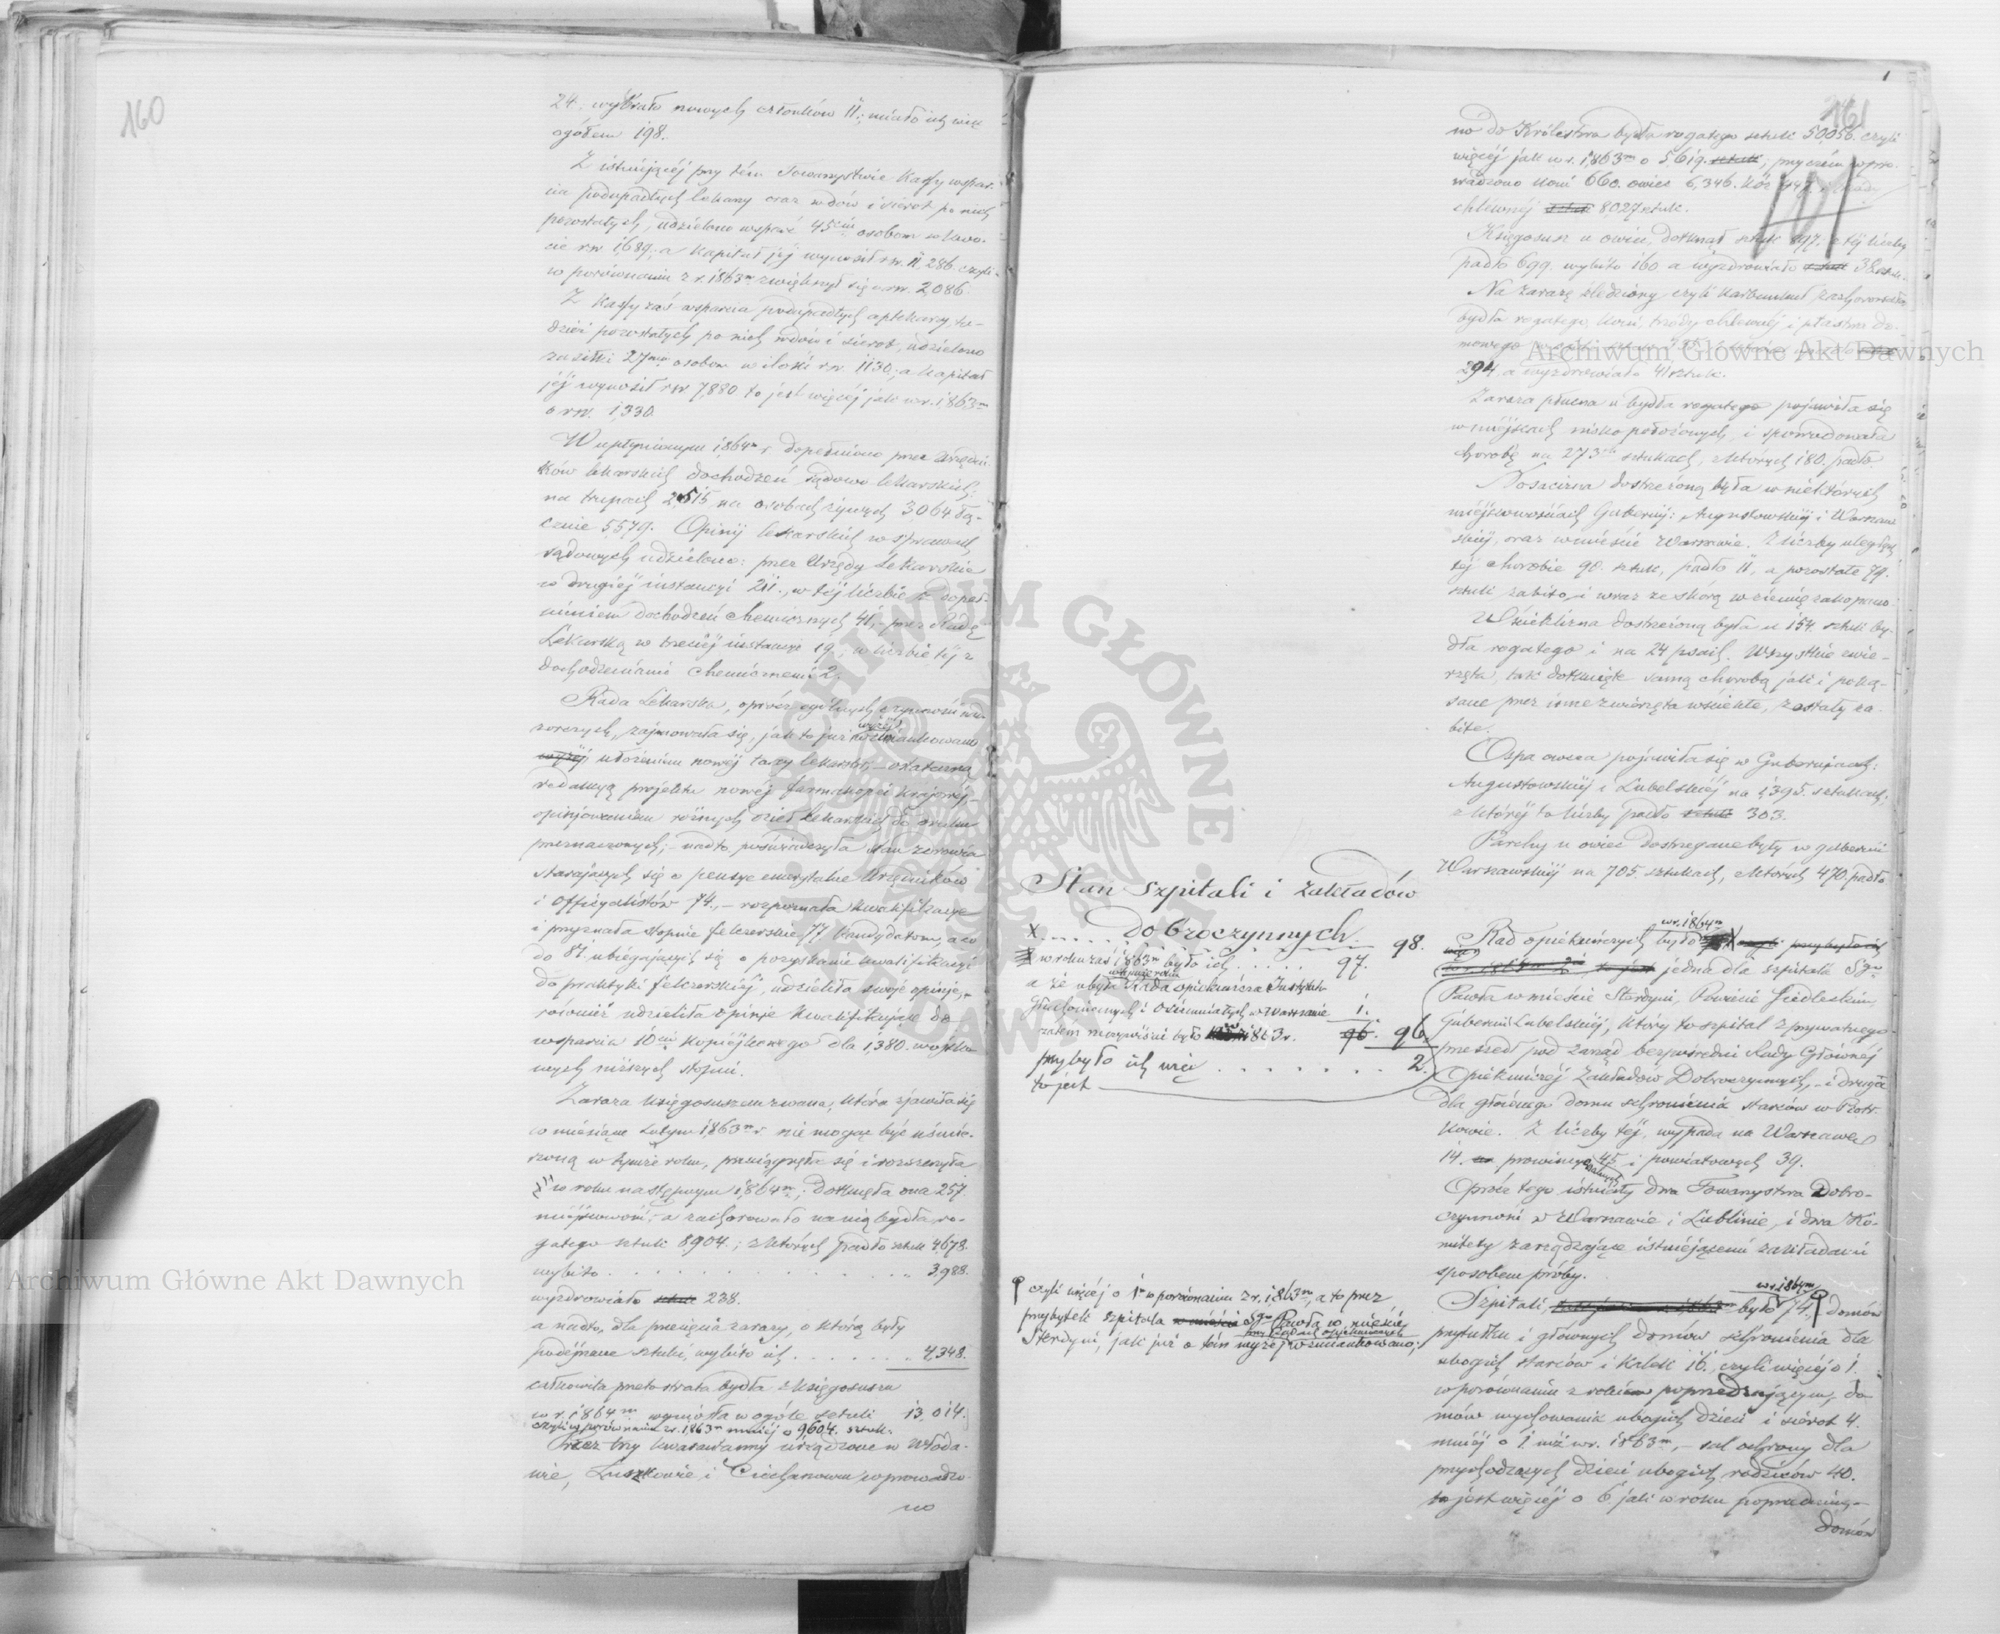 160
24. wybrało nowych członków 11; miało ich więc
ogółem 198.
Z istniejącéj przy tém Towarzystwie Kassy wspar-
cia podupadłych lekarzy oraz wdów i sierot po nich
pozostałych, udzielono wsparć 45ciu osobom w kwo-
cie rsr. 1,689; a kapitał jéj wynosił rsr. 11,286. czyli
w porównaniu z r. 1863m zwiększył się o rsr. 2,086.
Z Kassy zaś wsparcia podupadłych aptekarzy tu-
dzież pozostałych po nich wdów i sierot, udzielono
zasiłki 27miu osobom w ilości rsr. 1130; a kapitał
jéj wynosił rsr. 7,880 to jest więcéj jak w r. 1863m
o rsr. 1,330.
W upłynionym 1864m r. dopełniono przez Urzędni-
ków lekarskich dochodzeń sądowo lekarskich:
na trupach 2,515 na osobach żywych 3,064. łą-
cznie 5,579. Opinij lekarskich w sprawach
sądowych udzielono: przez Urzędy Lekarskie
w drugiéj instancyi 211., w téj liczbie z dopeł-
nieniem dochodzeń chemicznych 41, - przez Radę
Lekarską w trzeciéj instancyi 19; w liczbie téj z
dochodzeniami chemicznemi 2.
Rada Lekarska, oprócz ogólnych czynności nad-
zorczych, zajmowała się, jak to już wyżéj wzmiankowano
wyżéj ułożeniem nowéj taxy lekarskiéj, - ostateczną
redakcyą projektu nowéj farmakopei krajowéj, -
opinjowaniem różnych dzieł lekarskich do druku
przeznaczonych; - nadto poświadczyła stan zdrowia
starających się o pensye emerytalne Urzędników
i Officyalistów 74., - rozpoznała kwalifikacye
i przyznała stopnie felczerskie 77 kandydatom, a co
do 81. ubiegających się o pozyskanie kwalifikacyi
do praktyki felczerskiéj, udzieliła swoje opinje, -
również udzieliła opinje kwalifikujące do
wsparcia 10cio kopiéjkowego dla 1,380. wojsko-
wych niższych stopni.
Zaraza księgosuszem zwana, która zjawiła się
w miesiącu Lutym 1863m r. nie mogąc być uśmie-
rzoną w tymże roku, przeciągnęła się i rozszerzyła
w roku następnym 1864m; dotknęła ona 257.
miéjscowości, - a zachorowało na nią bydła ro-
gatego sztuk 8,904.; z których padło sztuk 4,678.
wybito . . . . . . . . . . „ 3,988.
wyzdrowiało sztuk 238.
a nadto, dla przecięcia zarazy, o którą były
podéjrzane sztuki, wybito ich . . . . . . „ 4,348.
całkowita przeto strata bydła z księgosuszu
w r. 1864m wyniosła w ogóle sztuk 13,014.
czyli w porównaniu z r. 1863m mniéj o 9604. sztuk.
Przez trzy kwarantanny urządzone w Włoda-
wie, Łuszkowie i Ciechanowcu wprowadzo-
no
161
no do Królestwa bydła rogatego sztuk 50,056. czyli
więcéj jak w r. 1863m o 5619. sztuk; przyczém wpro-
wadzono koni 660. owiec 6,346. kóz 447.
chlewnéj sztuk 8,027 sztuk.
Księgosusz u owiec, dotknął sztuk 897. z téj liczby
padło 699. wybito 160 a wyzdrowiało sztuk 38 sztuk.
Na zarazę śledziony czyli karbunkuł zachorowało
bydła rogatego, koni, trzody chlewnéj i ptastwa do-
mowego
294. a wyzdrowiało 41 sztuk.
Zaraza płucna u bydła rogatego pojawiła się
w miéjscach nisko położonych, i spowodowała
chorobę na 273ch sztukach, z których 180. padło.
Nosacizna dostrzeżoną była w niektórych
miéjscowościach Gubernij: Augustowskiéj i Warszaw-
skiéj, oraz w mieście Warszawie. Z liczby uległych
téj chorobie 90. sztuk, padło 11, a pozostałe 79.
sztuk zabito, i wraz ze skórą w ziemię zakopano.
Wścieklizna dostrzeżoną była u 154. sztuk by-
dła rogatego i na 24 psach. Wszystkie zwie-
rzęta, tak dotknięte samą chorobą jak i poką-
sane przez inne zwierzęta wściekłe, zostały za-
bite.
Ospa owcza pojawiła się w Guberniach:
Augustowskiéj i Lubelskiéj na 1,395. sztukach;
z któréj to liczby padło sztuk 303.
Parchy u owiec dostrzegane były w gubernii
Warszawskiéj na 705 sztukach, z których 470. padło.
Stan szpitali i zakładów
dobroczynnych.
X . . . . . . . . . . 98.
w roku zaś 1863m było ich . . . . . 97.
w tymże roku
a że ubyła Rada opiekuńcza Instytutu
Głuchoniemych i Ociemniałych w Warszawie 1.
zatem rzeczywiście było w 1863. r. 96. 96
przybyło ich więc . . . . . . . . 2.
to jest
Rad opiekuńczych było w r. 1864m X
jedna dla szpitala Sgo
Pawła w mieście Sterdyni, Powiecie Siedleckim,
Gubernii Lubelskiéj, który to szpital z prywatnego
przeszedł pod zarząd bezpośredni Rady Głównéj
Opiekuńczéj Zakładów Dobroczynnych, - i druga
dla głównego domu schronienia starców w Piotr-
kowie. Z liczby téj, wypada na Warszawę
14. na prowincyonalnych 45 i powiatowych 39.
Oprócz tego istniały dwa Towarzystwa Dobro-
czynności w Warszawie i Lublinie, i dwa Ko-
mitety zarządzające istniejącemi zakładami
sposobem próby.
Szpitali było w r. 1864m 74, domów
przytułku i głównych domów schronienia dla
ubogich starców i kalek 16. czyli więcéj o 1.
w porównaniu z rokiem poprzedzającym, do-
mów wychowania ubogich dzieci i sierot 4.
mniéj o 1 niż w r. 1863m, - sal ochrony dla
przychodzących dzieci ubogich rodziców 40.
to jest więcéj o 6 jak w roku poprzednim, -
domów
czyli więcéj o 1n w porównaniu z r. 1863m, a to przez
przybytek szpitala w mieście Sgo Pawła w mieście
Sterdyni, jak już o tém przy Radach opiekuńczych wyżéj wzmiankowano;
Archiwum Główne Akt Dawnych
Archiwum Główne Akt Dawnych
ARCHIWUM GŁÓWNE AKT DAWNYCH